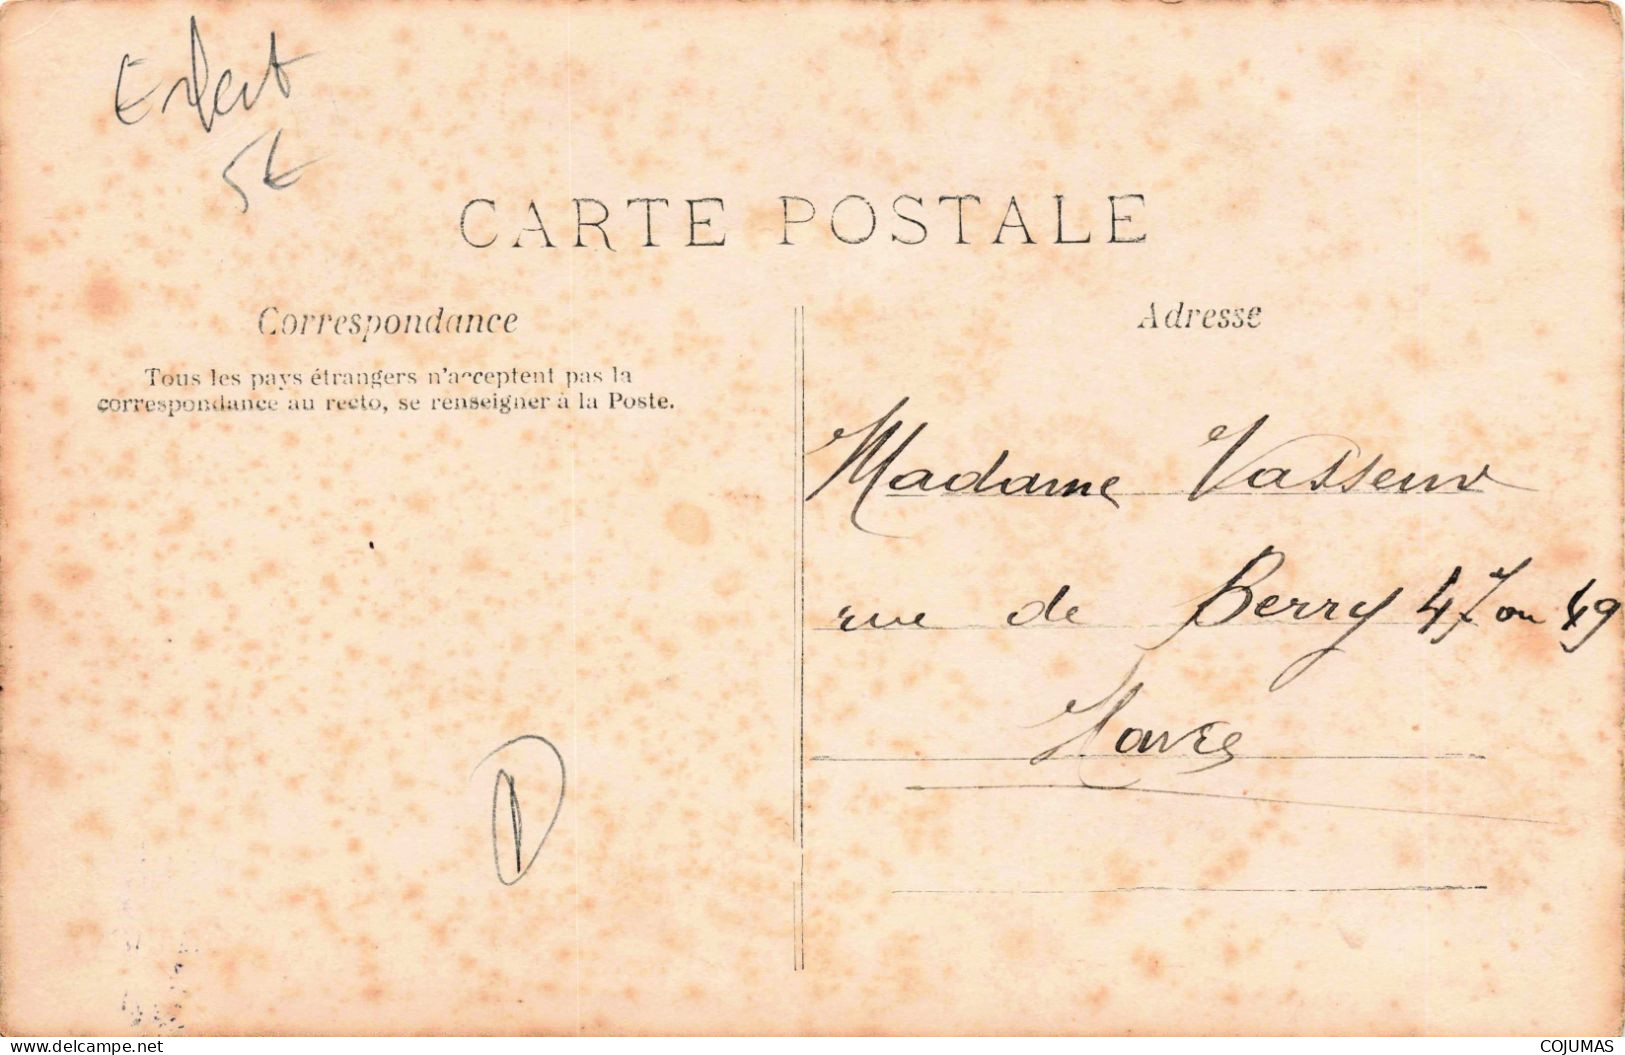 5€
CARTE POSTALE
Correspondance
Tous les pays étrangers n'acceptent pas la
correspondance au recto, se renseigner à la Poste.
Adresse
Madame Vasseur
rue de Berry 47 ou 49
Havre
D
www.delcampe.net
COJUMAS